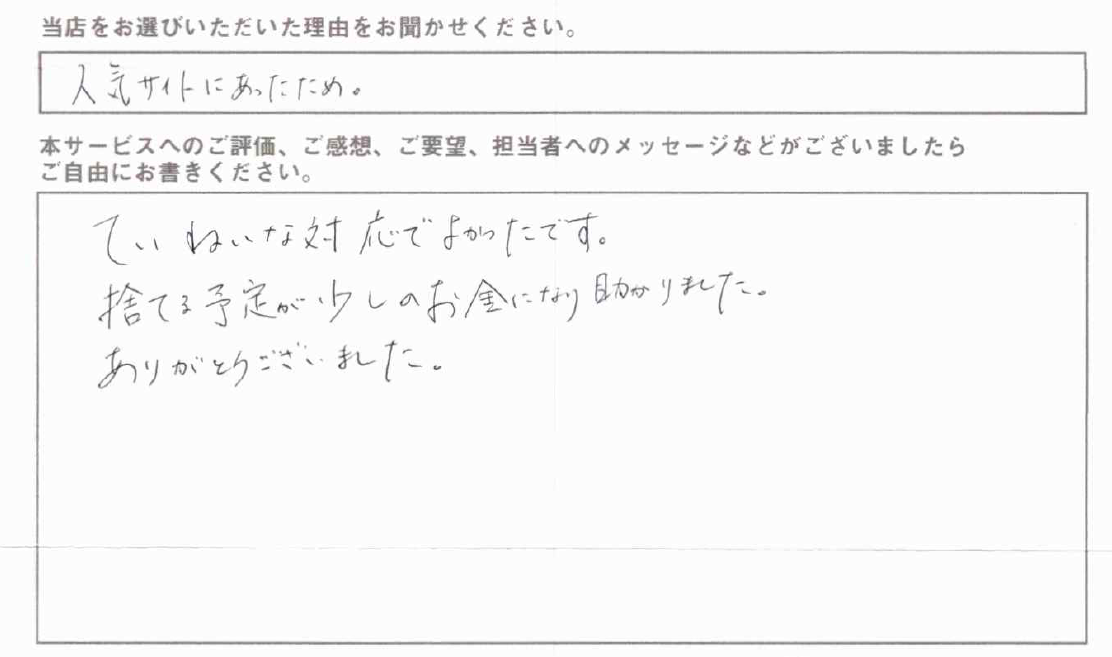 当店をお選びいただいた理由をお聞かせください。
人気サイトにあったため。
本サービスへのご評価、ご感想、ご要望、担当者へのメッセージなどがございましたら
ご自由にお書きください。
ていねいな対応でよかったです。
捨てる予定が少しのお金になり助かりました。
ありがとうございました。